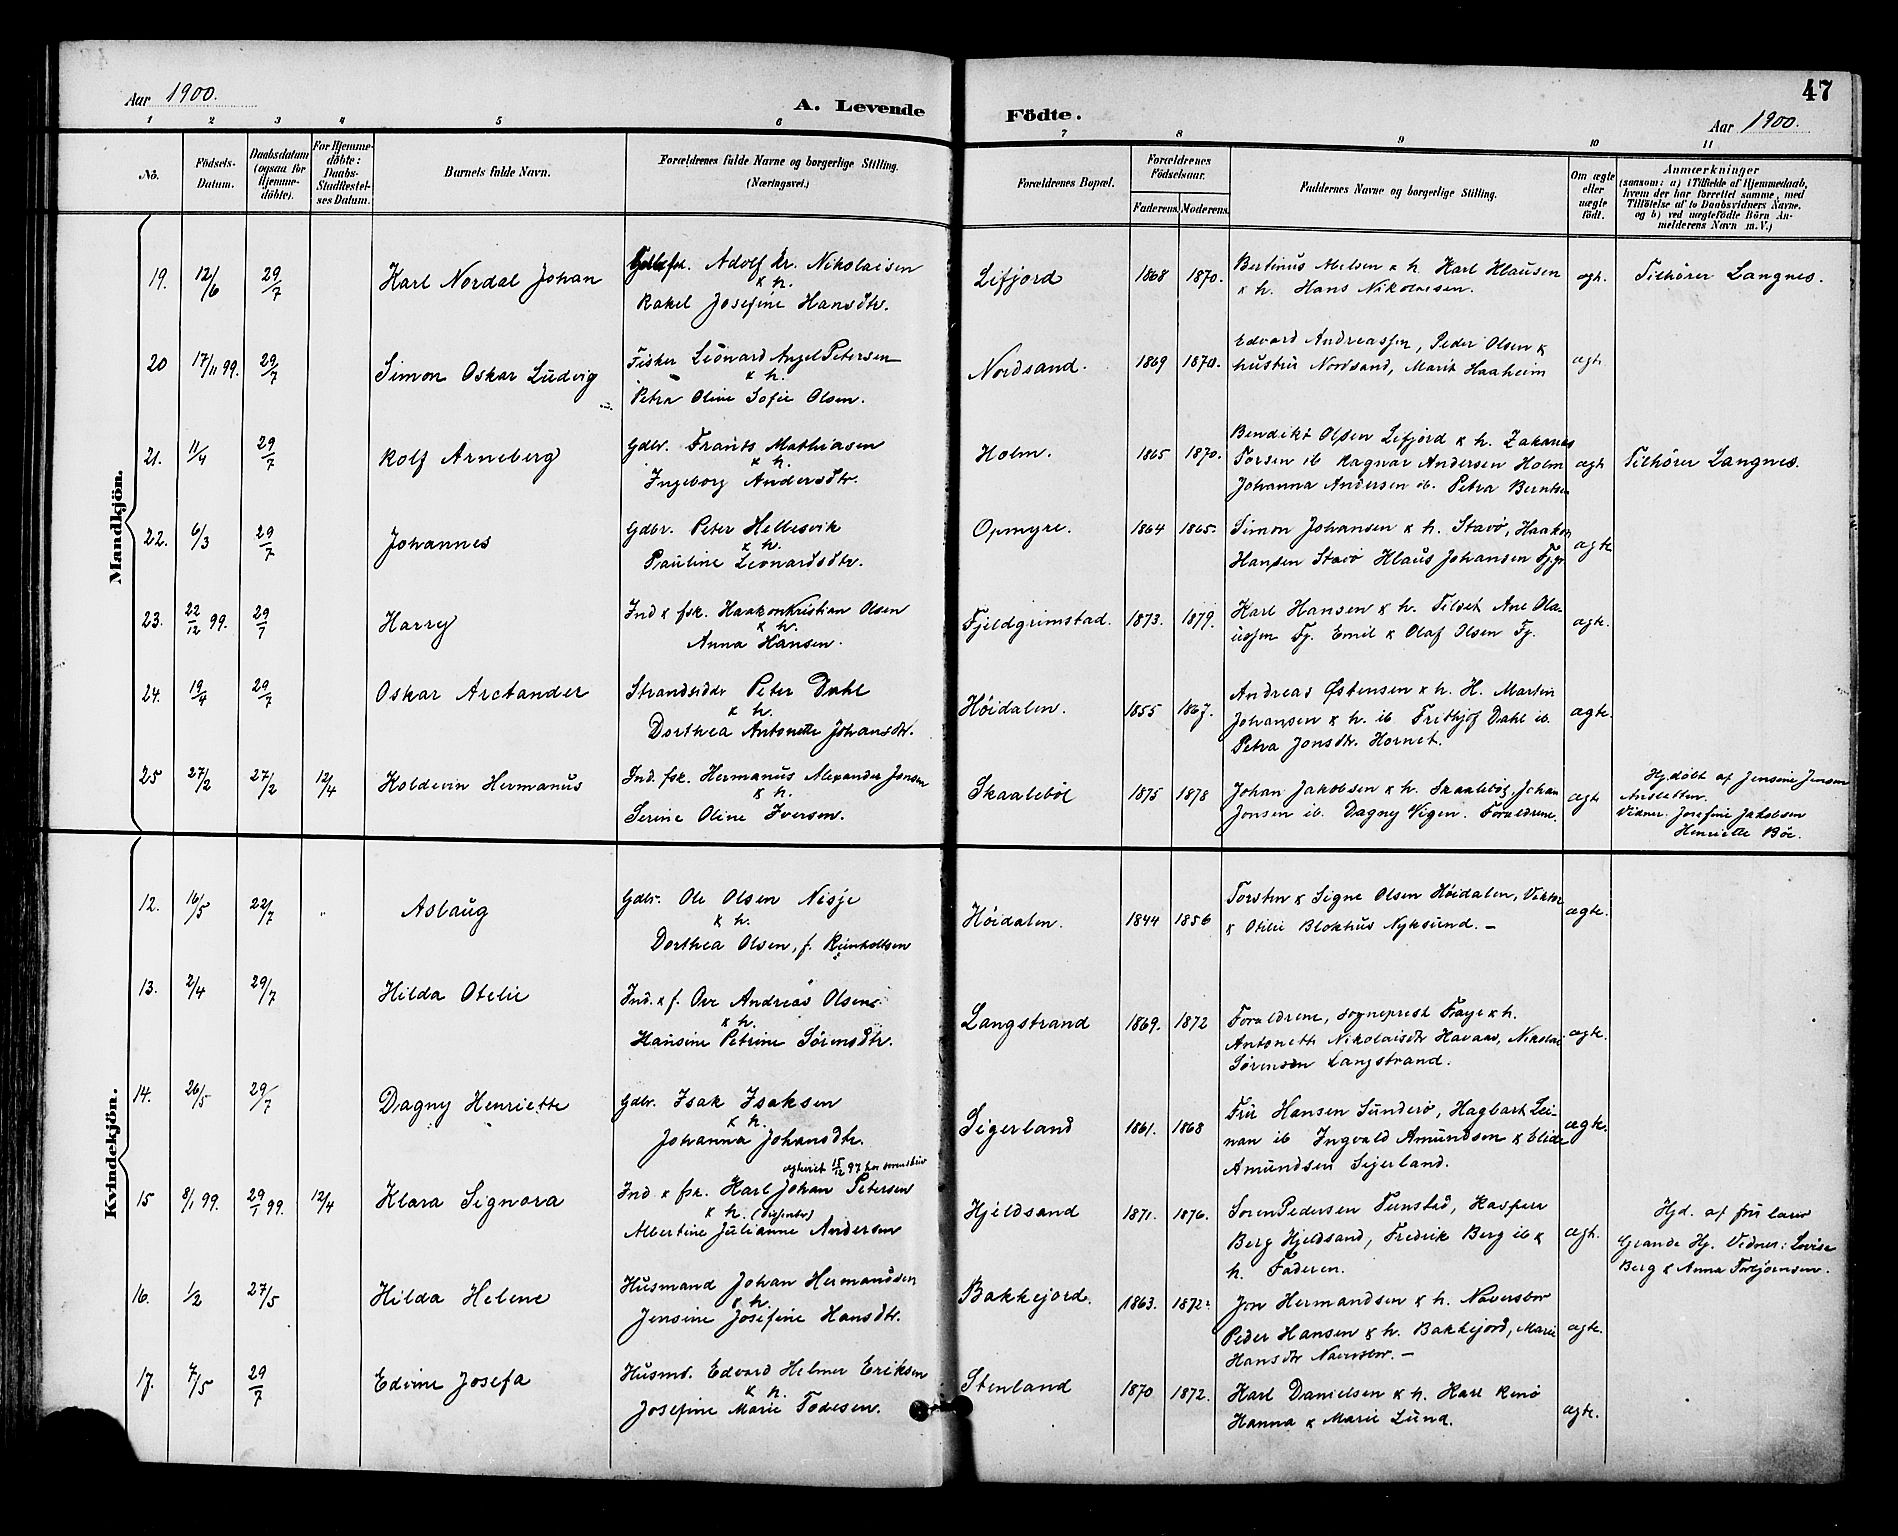 47
Aar 1900.
A. Levende Födte.
Aar 1900.
1 2 3 4 5 6 7 8 9 10 11
No.
Födsels-Datum.
Daabsdatum (ogsaa for Hjemme-döbte).
For Hjemme-döbte: Daabs-Stadfestel-ses Datum.
Barnets fulde Navn.
Forældrenes fulde Navne og borgerlige Stilling. (Næringsvei.)
Forældrenes Bopæl.
Forældrenes Födselsaar.
Faderens. Moderens.
Faddernes Navne og borgerlige Stilling.
Om ægte eller uægte födt.
Anmærkninger
(saasom: a) i Tilfælde af Hjemmedaab, hvem der har forrettet samme, med Tilföielse af to Daabsvidners Navne. og b) ved uægtefödte Börn An-melderens Navn m. V.)
Mandkjön.
19. 12/6 29/7 Karl Nordal Johan
Adolf Kr. Nikolaisen
& h.
Rakel Josefine Hansdtr.
Lifjord 1868 1870.
Bertinus Nielsen & h. Karl Klausen
& h. Hans Nikolaisen.
ægt. Tilhører Langnes.
20 17/11 99. 29/7 Simon Oskar Ludvig
Fisker Leonard Angel Petersen
& h.
Petra Oline Sofie Olsen.
Nordsand. 1869 1870.
Edvard Andreassen, Peder Olsen &
hustru Nordsand, Marit Haaheim
ægt.
21. 11/4 29/7 Rolf Arneberg
Gdbr. Frants Mathiasen
& h.
Ingeborg Andersdtr.
Holm. 1865 1870.
Bendikt Olsen Lifjord & h. Zakarias
Torsen ib Ragnar Andersen Holm
Johanna Andersen ib. Petra Berntsen
ægt. Tilhører Langnes.
22. 6/3 29/7 Johannes
Gdbr. Peter Hellesvik
& h.
Pauline Leonardsdtr.
Opmyre. 1864 1865.
Simon Johansen & h. Stavø, Haakon
Hansen Stavø Klaus Johansen Fj.gr
ægte
23. 22/12 99. 29/7 Harry
Ind & fsk. Haakon Kristian Olsen
& h.
Anna Hansen.
Fjeldgrimstad. 1873. 1879.
Karl Hansen & h. Tilset Ane Ola-
ussen Fj. Emil & Olaf Olsen Fj.
ægte.
24. 19/4 29/7 Oskar Arctander
Strandsidder Peter Dahl
& h.
Dorthea Antonette Johansdtr.
Höidalen. 1855 1867.
Andreas Østensen & h. H. Martin
Johansen & h. ib Frithjof Dahl ib.
Petra Jonsdtr. Hornet.
ægte.
25 27/2 27/2 12/4 Koldevin Hermanus
Ind. fsk. Hermanus Alexander Jensen
& h.
Serine Oline Iversen.
Skaaleböl 1875 1878
Johan Jakobsen & h. Skaalebög, Johan
Jonsen ib. Dagny Vigen. Forældrene.
ægte
Hj.døbt af Jensine Jenson
Vidner. Josefine Jakobsen
Henriette Böe.
Kvindekjön.
12. 16/5 22/7 Aslaug
Gdbr. Ole Olsen Nisje
& h.
Dorthea Olsen, f. Reinholtsen
Höidalen. 1844 1856
Torsten & Signe Olsen Höidalen, Viktor
& Otilie Blokhus Nyksund. –
ægte.
13. 2/4 29/7 Hilda Otelie
Ind. & f. Ove Andreas Olsen
& h.
Hansine Petrine Sörensdtr.
Langstrand 1869. 1872
Forældrene, Sogneprest Faye & h.
Antonette Nikolaisdtr Havaas, Nikolai
Sörensen Langstrand.
ægte.
14. 26/5 29/7 Dagny Henriette
Gdbr. Isak Isaksen
& h.
Johanna Johansdtr.
Sigerland 1861. 1868
Fru Hansen Sunderø, Hagbart Lei-
nan ib Ingvald Amundsen & Elida
Amundsen Sigerland.
ægte.
15 8/1 99. 29/1 99. 12/4 Klara Signora
ægteviet 15/12 97
Ind & fsk. Karl Johan Petersen
& h.
Albertine Julianne Andersen
Hjeldsand 1871. 1876.
Soren Pedersen Tunstad, Kasper
Berg Hjeldsand, Fredrik Berg ib &
h. Faderen.
ægt.
Hjd. af fru Larso
Grande Hj. Vidner: Lovise
Berg & Anna Torbjornsen.
16. 1/2 27/5 Hilda Helene
Husmand Johan Hermandsen
& h.
Jensine Josefine Hansdtr.
Bakkejord. 1863. 1872.
Jon Hermandsen & h. Naversbor
Peder Hansen & h. Bakkejord, Marie
Hansdtr Naversbor. –
ægte.
17. 7/5 29/7 Edvine Josefa
Husmd. Edvard Helmer Eriksen
& h.
Josefine Marie Todesen.
Stenland 1870 1872.
Karl Danielsen & h. Karl Renö
Hanna & Marie Lund.
ægte.